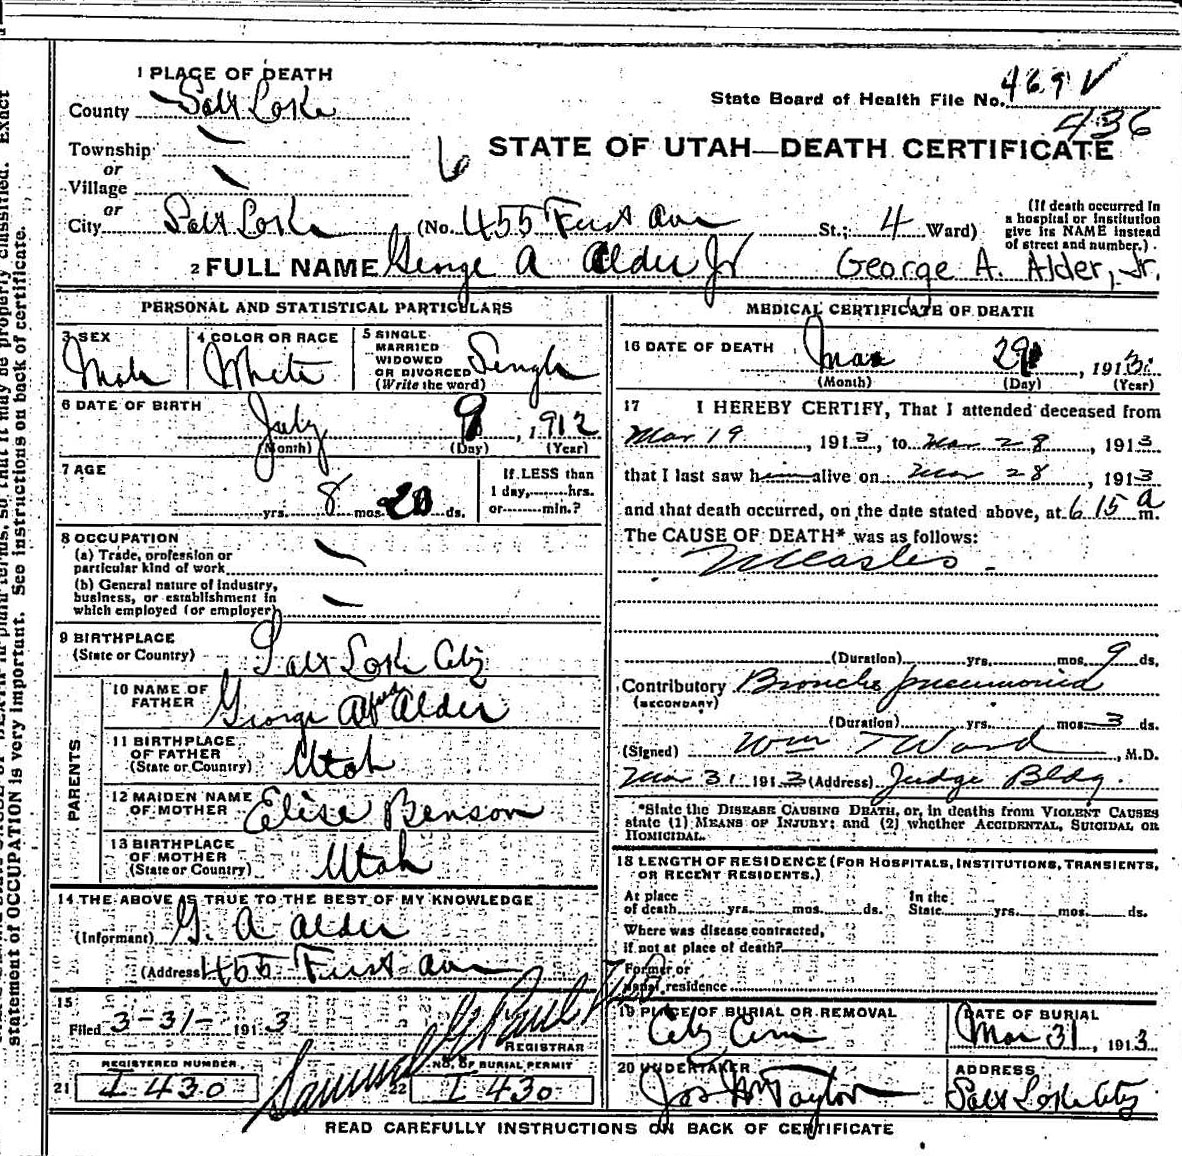 1 PLACE OF DEATH
County Salt Lake
State Board of Health File No. 469 V
436
Township
or
Village
STATE OF UTAH—DEATH CERTIFICATE
6
or
City Salt Lake (No. 455 First Ave St.; 4 Ward)
(If death occurred in
a hospital or institution
give its NAME instead
of street and number.)
2 FULL NAME George A Alder Jr George A. Alder, Jr.
PERSONAL AND STATISTICAL PARTICULARS
3 SEX
Male
4 COLOR OR RACE
White
5 SINGLE
MARRIED
WIDOWED
OR DIVORCED
(Write the word)
Single
6 DATE OF BIRTH
July 9, 1912
(Month) (Day) (Year)
7 AGE
yrs. 8 mos. 20 ds.
If LESS than
1 day, hrs.
or min.?
8 OCCUPATION
(a) Trade, profession or
particular kind of work
(b) General nature of industry,
business, or establishment in
which employed (or employer)
9 BIRTHPLACE
(State or Country) Salt Lake City
PARENTS
10 NAME OF
FATHER George Alder
11 BIRTHPLACE
OF FATHER
(State or Country) Utah
12 MAIDEN NAME
OF MOTHER Elise Benson
13 BIRTHPLACE
OF MOTHER
(State or Country) Utah
14 THE ABOVE IS TRUE TO THE BEST OF MY KNOWLEDGE
(Informant) G. A Alder
(Address 455 First Ave
15
Filed 3-31- 1913 Samuel G Paul
REGISTRAR
REGISTERED NUMBER
21 I 430
NO. OF BURIAL PERMIT
22 I 430
MEDICAL CERTIFICATE OF DEATH
16 DATE OF DEATH
Mar 29, 1913
(Month) (Day) (Year)
17 I HEREBY CERTIFY, That I attended deceased from
Mar 19, 1913, to Mar 28, 1913
that I last saw him alive on Mar 28, 1913
and that death occurred, on the date stated above, at 6 15 a m.
The CAUSE OF DEATH* was as follows:
Measles
(Duration) yrs. mos. 9 ds.
Contributory Broncho pneumonia
(SECONDARY)
(Duration) yrs. mos. 3 ds.
(Signed) Wm T Ward, M.D.
Mar 31 1913 (Address) Judge Bldg.
*State the DISEASE CAUSING DEATH, or, in deaths from VIOLENT CAUSES
state (1) MEANS OF INJURY; and (2) whether ACCIDENTAL, SUICIDAL OR
HOMICIDAL.
18 LENGTH OF RESIDENCE (FOR HOSPITALS, INSTITUTIONS, TRANSIENTS,
OR RECENT RESIDENTS.)
At place
of death yrs. mos. ds.
In the
State yrs. mos. ds.
Where was disease contracted,
if not at place of death?
Former or
usual residence
19 PLACE OF BURIAL OR REMOVAL
City Cem
DATE OF BURIAL
Mar 31, 1913
20 UNDERTAKER
Jos Wm Taylor
ADDRESS
Salt Lake City
READ CAREFULLY INSTRUCTIONS ON BACK OF CERTIFICATE
so that it may be properly classified. Exact
statement of OCCUPATION is very important. See instructions on back of certificate.